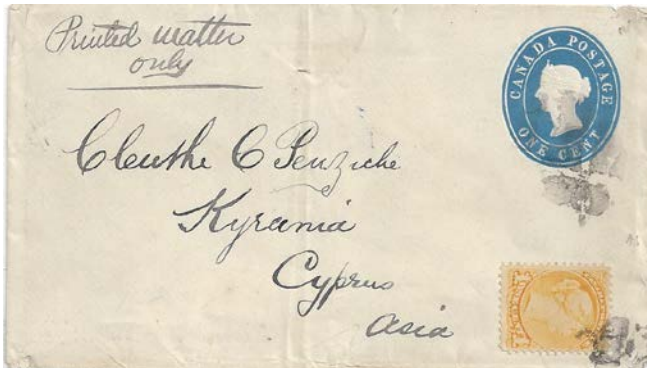 Printed matter
only
CANADA POSTAGE
ONE CENT
Cleuthe C Penziche
Kyrania
Cyprus
Asia